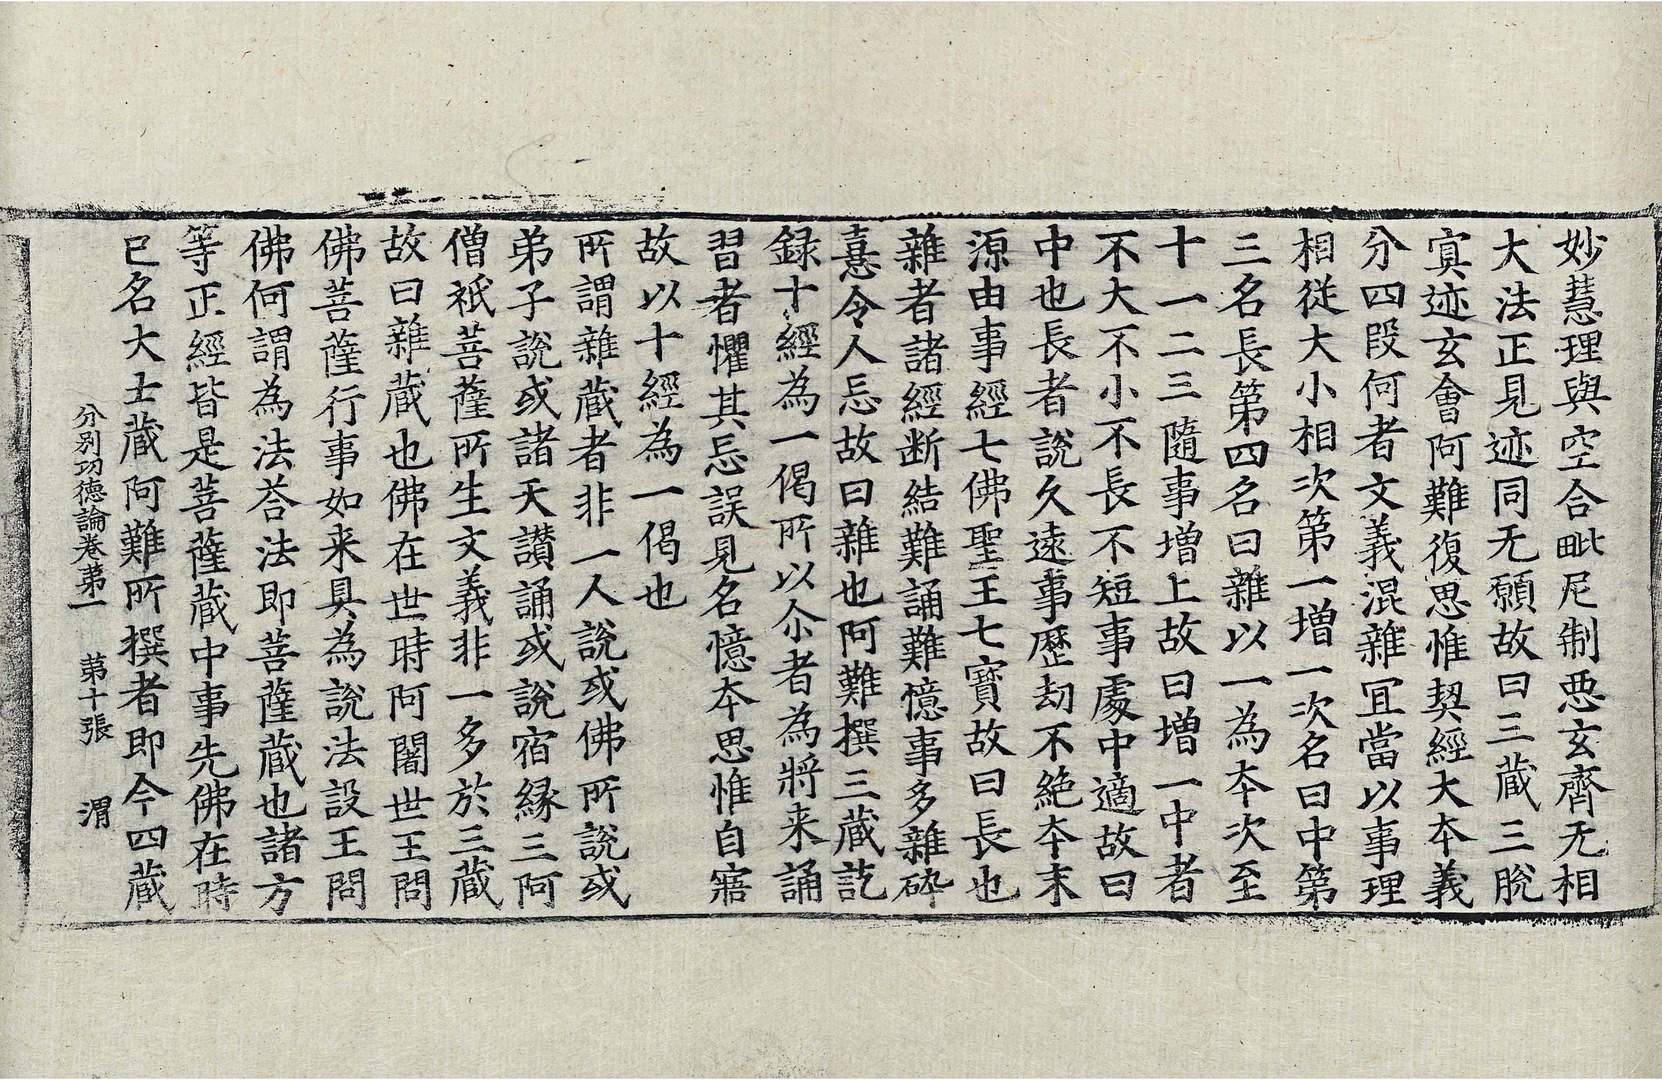 妙慧理與空合毗尼制惡玄齊无相
大法正見迹同无願故曰三藏三脫
寘迹玄會阿難復思惟契經大本義
分四段何者文義混雜宜當以事理
相從大小相次第一增一次名曰中第
三名長第四名曰雜以一為本次至
十一二三隨事增上故曰增一中者
不大不小不長不短事處中適故曰
中也長者說久遠事歷劫不絶本末
源由事經七佛聖王七寶故曰長也
雜者諸經断結難誦難憶事多雜碎
憙令人忘故曰雜也阿難撰三藏訖
録十經為一偈所以尒者為將来誦
習者懼其忘誤見名憶本思惟自寤
故以十經為一偈也
所謂雜藏者非一人說或佛所說或
弟子說或諸天讃誦或說宿緣三阿
僧祇菩薩所生文義非一多於三藏
故曰雜藏也佛在世時阿闍世王問
佛菩薩行事如来具為說法設王問
佛何謂為法荅法即菩薩藏也諸方
等正經皆是菩薩藏中事先佛在時
已名大士藏阿難所撰者即今四藏
分别功德論卷苐一　苐十張　渭